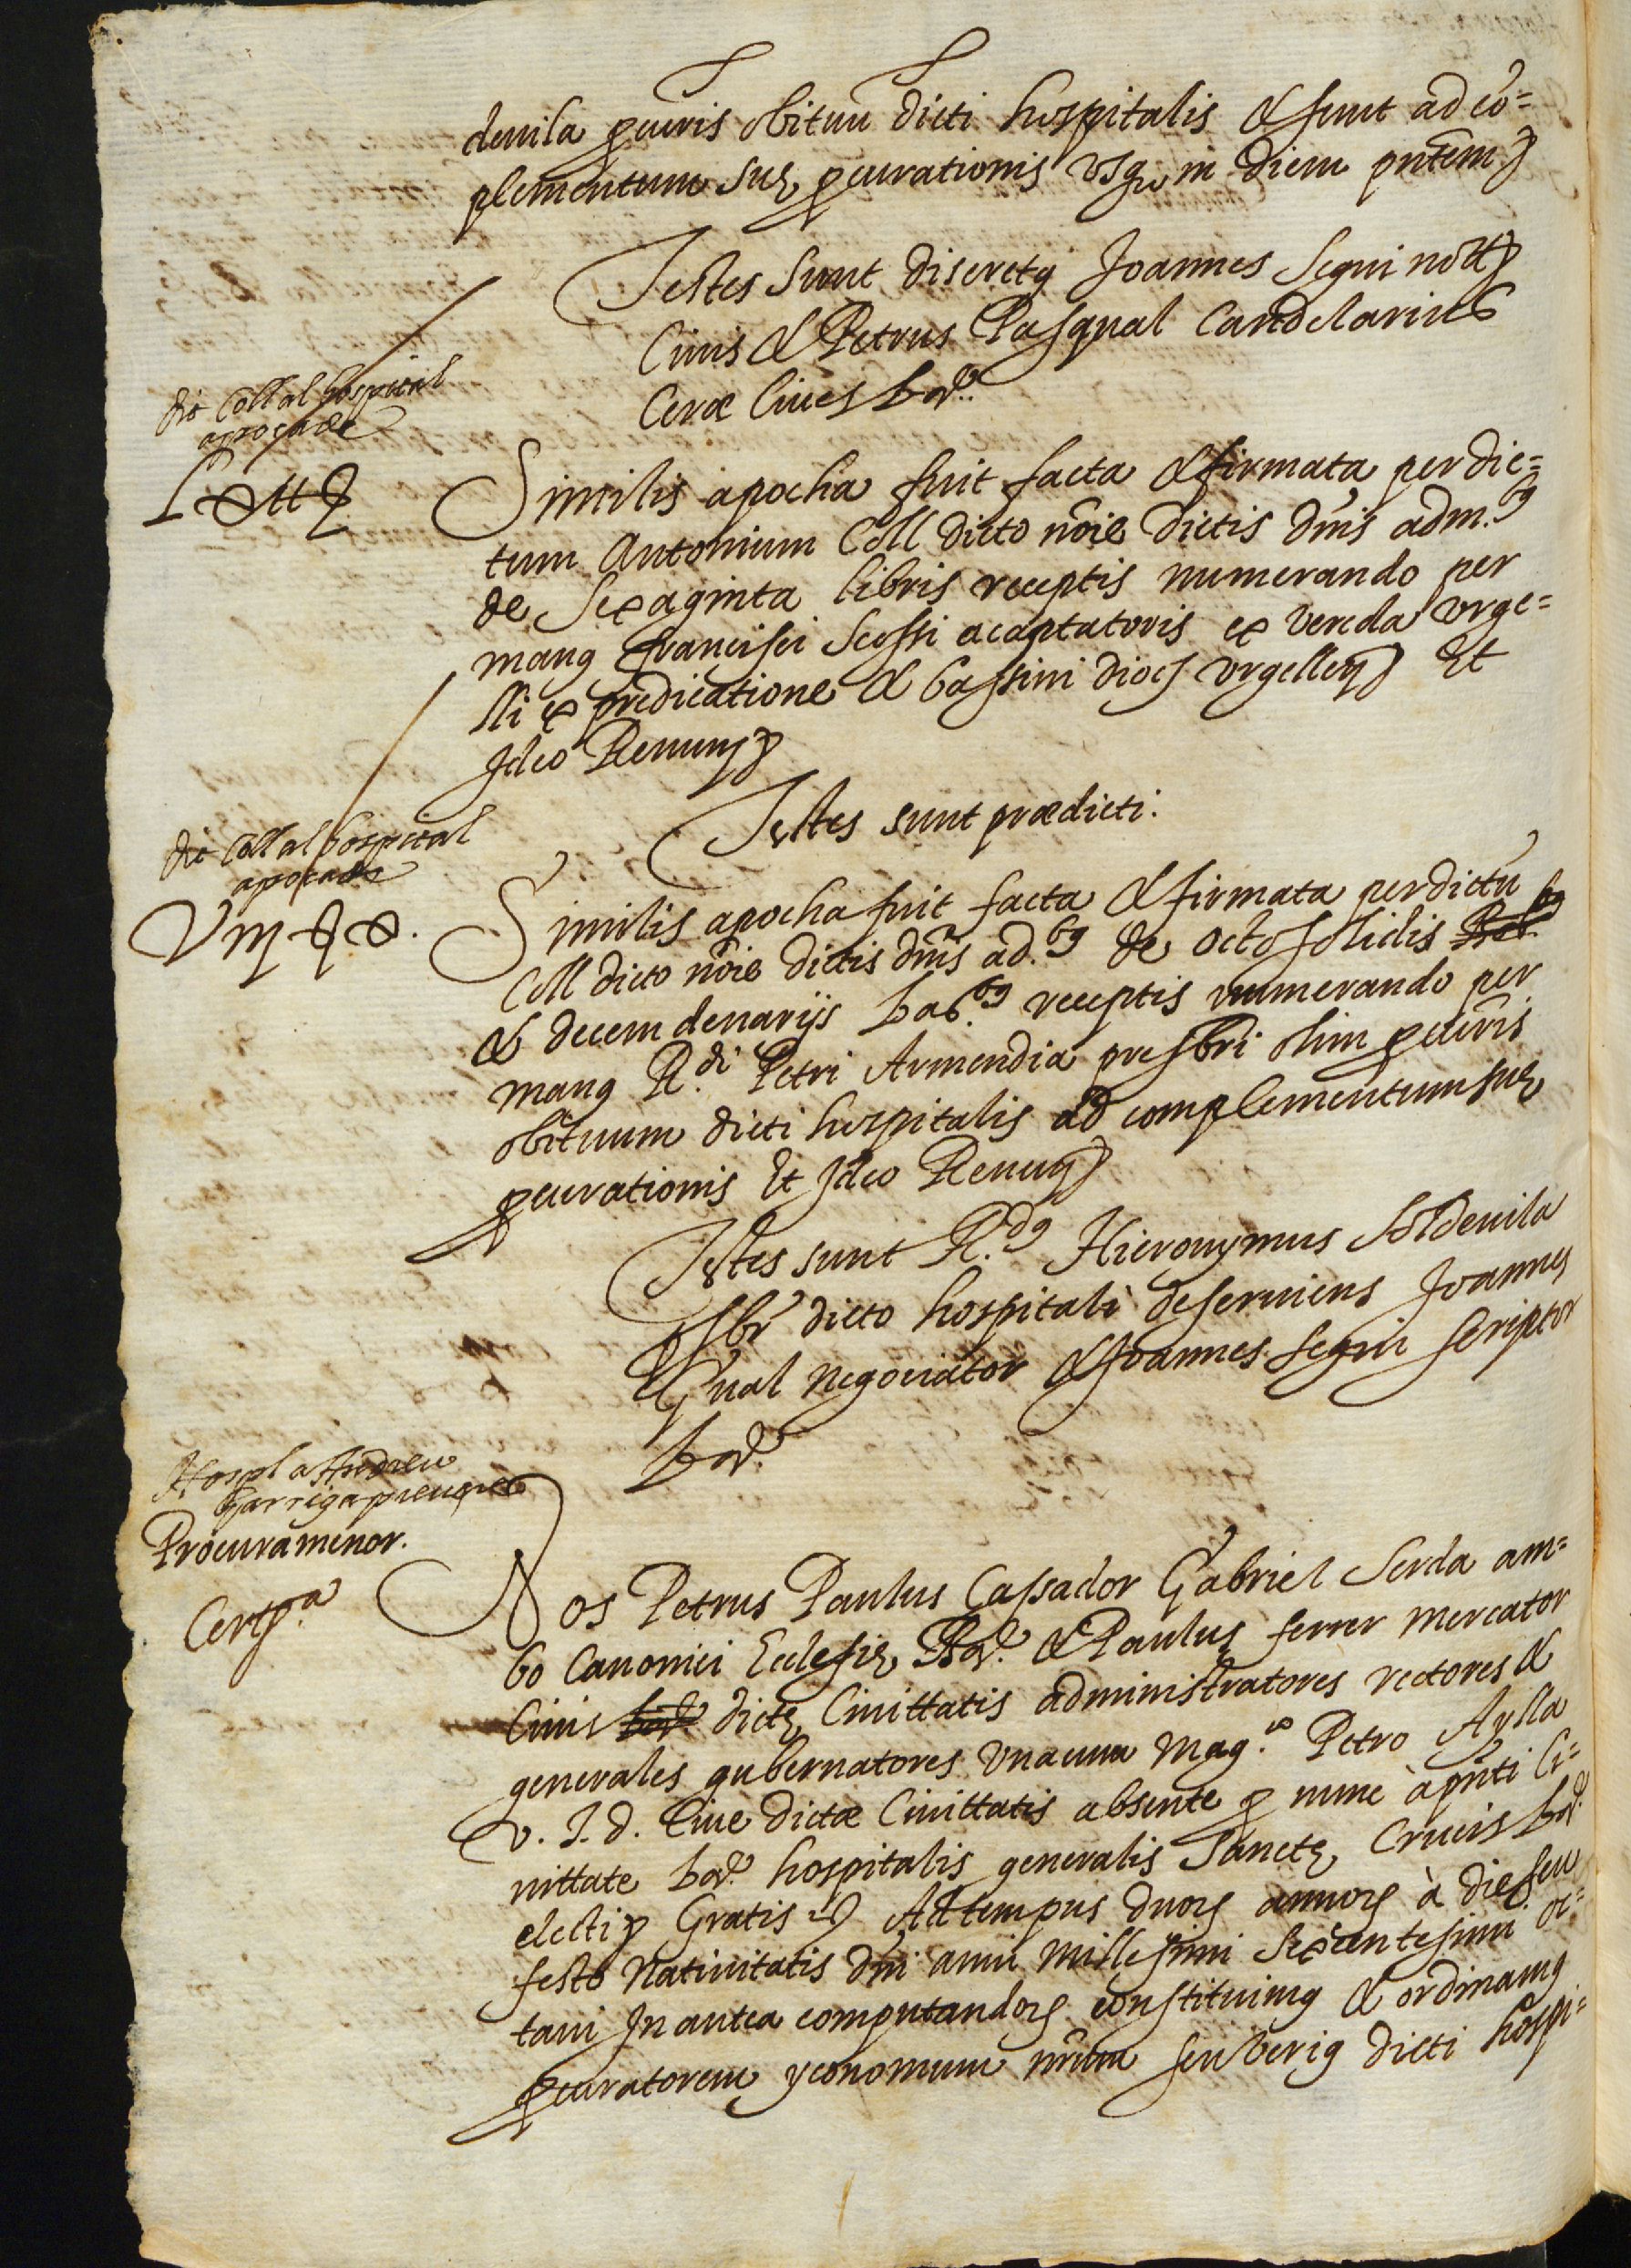 denila pcuris obituū dicti hospitalis & sunt ad cō=
plementum suę pcurationis vsq in diem pñtem
Testes sunt discretq Joannes Segui nott
Ciuis & Petrus Pasqual Candelarius
Ceræ Ciues bar.
dit Coll al hospital
apocha de
Lx ℔
Similis apocha fuit facta & firmata per dic=
tum Antonium Coll dicto nõie dictis dñis adm.bq
de Sexaginta libris receptis numerando per
manq francisci Scossi acaptatoris ex vereda vrge=
lli ex predicatione & bassini dioc vrgelleñ Et
Ideo Renunț
Testes sunt prædicti.
dit Coll al hospital
apocha de
Viij ß x.
Similis apocha fuit facta & firmata per dictū
Coll dicto nõie dictis dñis ad.bq de octo solidis
& decem denarijs bar.bq receptis numerando per
manq R.di Petri Armendia presbri olim pcuris
obituum dicti hospitalis ad complementum suę
pcurationis Et Ideo Renunț
Testes sunt R.dq Hieronymus Soldeuila
pbr dicto hospitali deseruiens Joannes
Gual negociator & Joannes Segui scriptor
bar.
Hospl a Andreu
Garriga preuere
Procura menor.
Certf.a
Nos Petrus Paulus Cassador Gabriel Serda am=
bo Canonici Ecclesię Bar. & Paulus ferrer mercator
Ciuis bar. dictę Ciuittatis administratores rectores &
generales gubernatores vnacum Mag.co Petro Aylla
v. J. d. Ciue dictæ Ciuittatis absente p nunc à pñti Ci=
uittate bar. hospitalis generalis Sanctę Crucis bar.
electi Gratis Ad tempus duorȝ annorȝ à die seu
festo Natiuitatis dñi anni millesimi Sexcentesimi oc=
taui In antea computandorȝ constituimq & ordinamq
pcuratorem yconomum nrūm seu veriq dicti hospi=